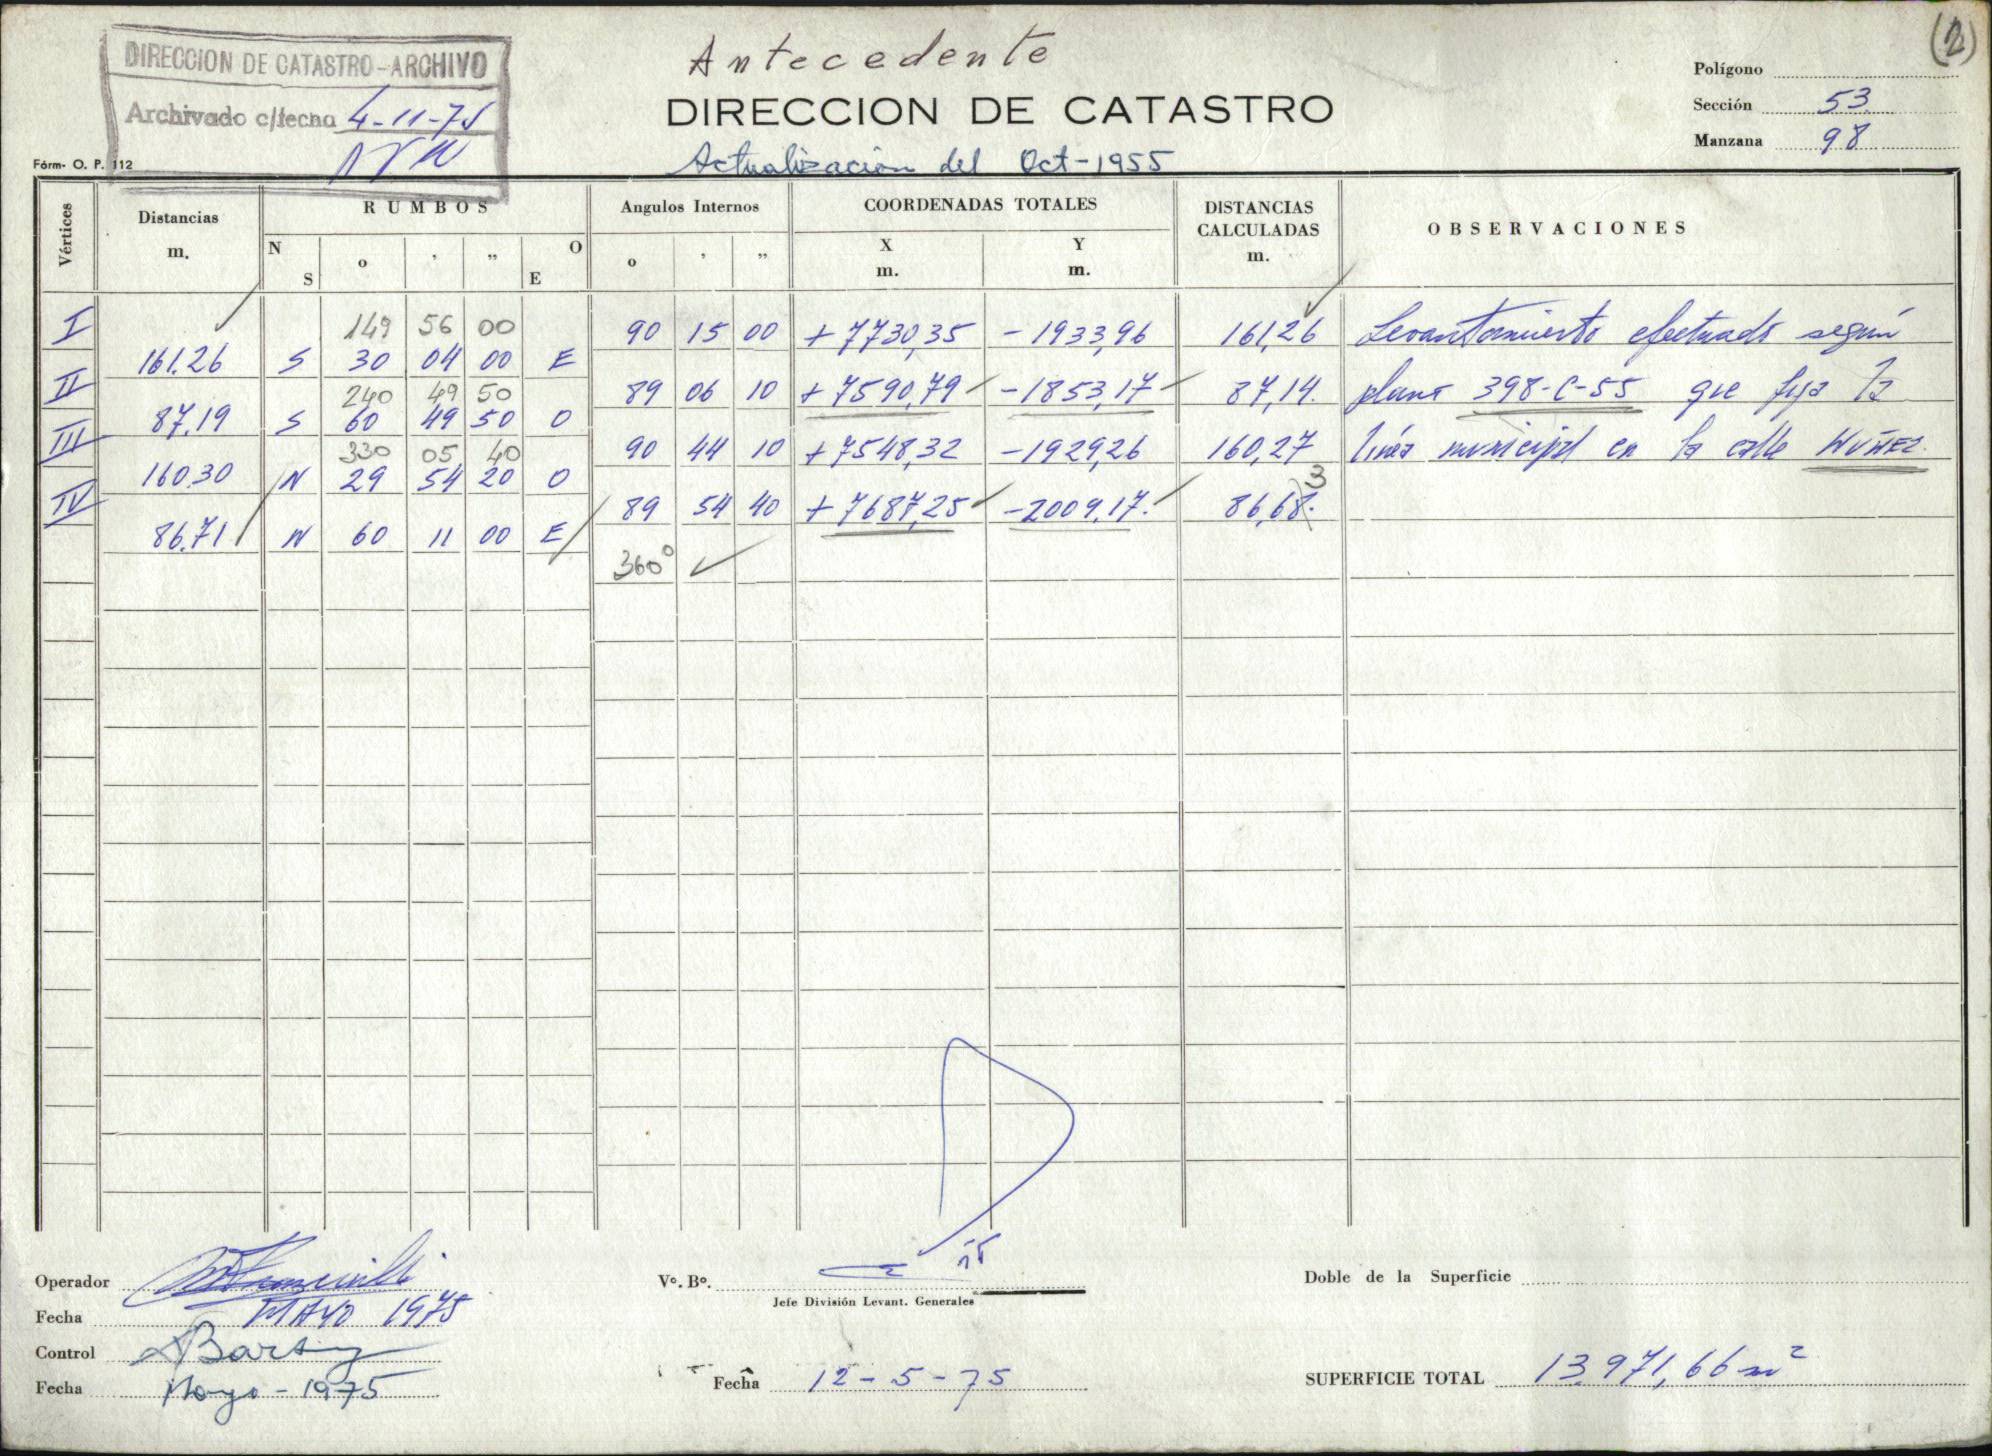 (2)
DIRECCION DE CATASTRO-ARCHIVO
Archivado c/fecha 4-11-75
Antecedente
DIRECCION DE CATASTRO
Actualización del Oct-1955
Polígono
Sección 53
Manzana 98
Fórm- O. P. 112
Vértices Distancias m. RUMBOS N S o ' " O E Angulos Internos o ' " COORDENADAS TOTALES X m. Y m. DISTANCIAS CALCULADAS m. OBSERVACIONES
I 149 56 00 90 15 00 +7730,35 -1933,96 161,26 Levantamiento efectuado según
161.26 S 30 04 00 E
II 240 49 50 89 06 10 +7590,79 -1853,17 87,14. plano 398-C-55 que fija la
87.19 S 60 49 50 O
III 330 05 40 90 44 10 +7548,32 -1929,26 160,27 línea municipal en la calle NUÑEZ.
160.30 N 29 54 20 O
IV 89 54 40 +7687,25 -2009,17. 86,68. 3
86.71 N 60 11 00 E
360°
Operador
Fecha MAYO 1975
Control
Fecha Mayo-1975
Vº. Bº.
Jefe División Levant. Generales
Fecha 12-5-75
Doble de la Superficie
SUPERFICIE TOTAL 13.971,66 m²